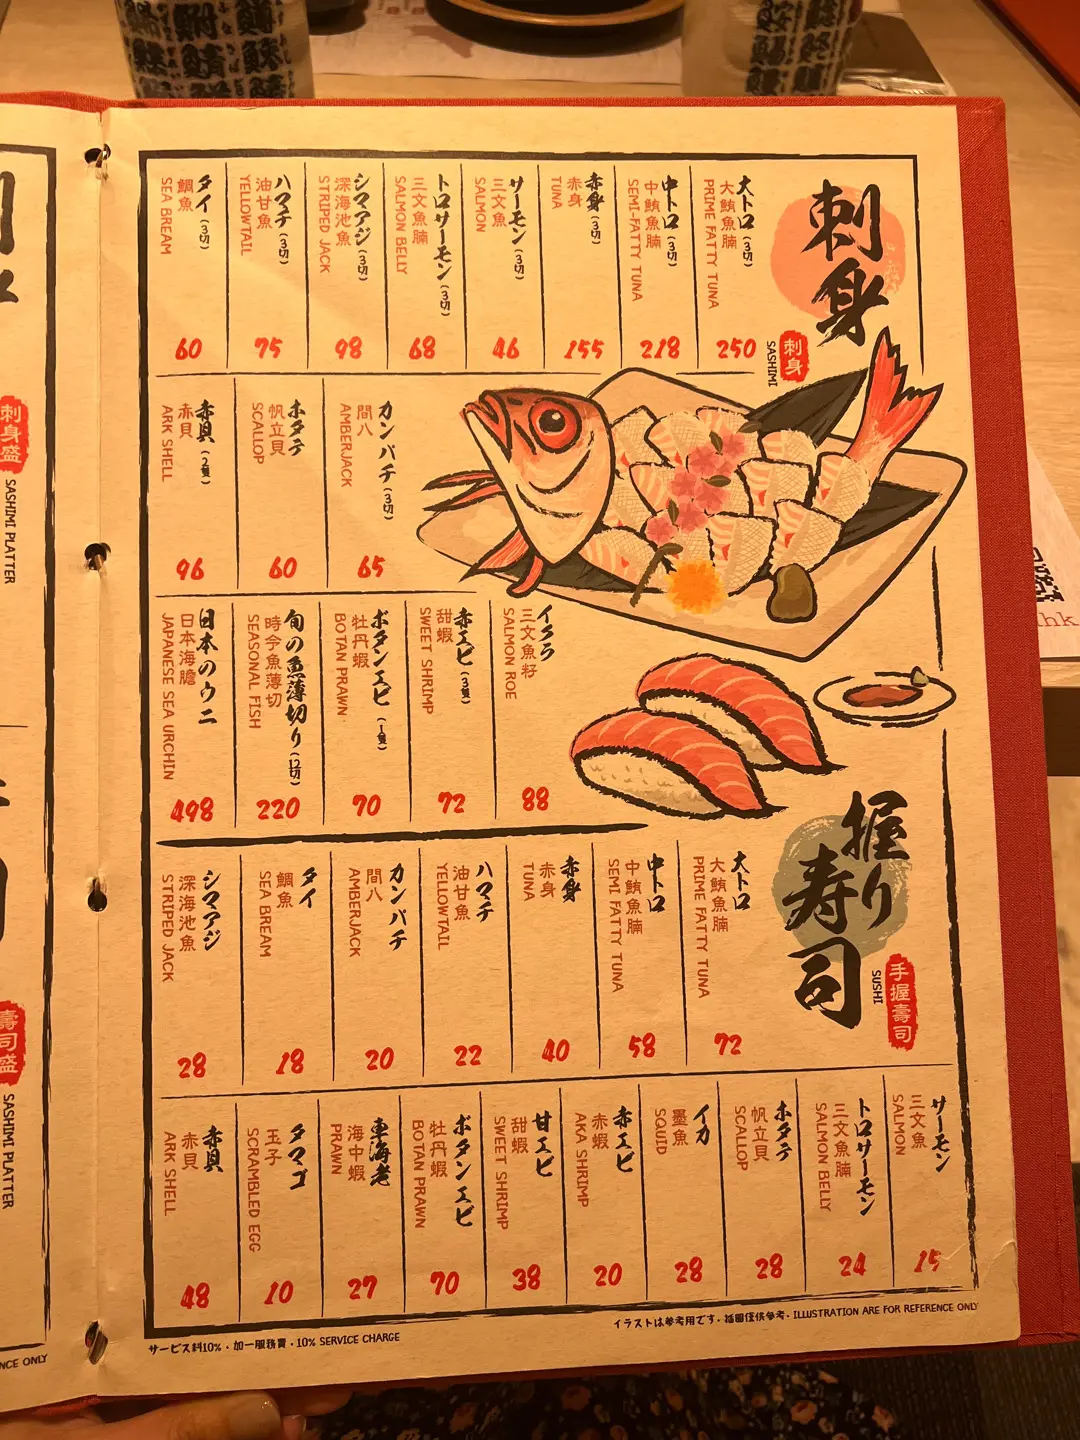 刺身
刺身
SASHIMI
大トロ (3切)
大鮪魚腩
PRIME FATTY TUNA
250
中トロ (3切)
中鮪魚腩
SEMI-FATTY TUNA
218
赤身 (3切)
赤身
TUNA
155
サーモン (3切)
三文魚
SALMON
46
トロサーモン (3切)
三文魚腩
SALMON BELLY
68
シマアジ (3切)
深海池魚
STRIPED JACK
98
ハマチ (3切)
油甘魚
YELLOWTAIL
75
タイ (3切)
鯛魚
SEA BREAM
60
カンパチ (3切)
間八
AMBERJACK
65
ホタテ
帆立貝
SCALLOP
60
赤貝 (2隻)
赤貝
ARK SHELL
96
イクラ
三文魚籽
SALMON ROE
88
赤エビ (3隻)
甜蝦
SWEET SHRIMP
72
ボタンエビ (1隻)
牡丹蝦
BOTAN PRAWN
70
旬の魚薄切り (12切)
時令魚薄切
SEASONAL FISH
220
日本のウニ
日本海膽
JAPANESE SEA URCHIN
498
握り寿司
手握壽司
SUSHI
大トロ
大鮪魚腩
PRIME FATTY TUNA
72
中トロ
中鮪魚腩
SEMI FATTY TUNA
58
赤身
赤身
TUNA
40
ハマチ
油甘魚
YELLOWTAIL
22
カンパチ
間八
AMBERJACK
20
タイ
鯛魚
SEA BREAM
18
シマアジ
深海池魚
STRIPED JACK
28
サーモン
三文魚
SALMON
15
トロサーモン
三文魚腩
SALMON BELLY
24
ホタテ
帆立貝
SCALLOP
28
イカ
墨魚
SQUID
28
赤エビ
赤蝦
AKA SHRIMP
20
甘エビ
甜蝦
SWEET SHRIMP
38
ボタンエビ
牡丹蝦
BOTAN PRAWN
70
車海老
海中蝦
PRAWN
27
タマゴ
玉子
SCRAMBLED EGG
10
赤貝
赤貝
ARK SHELL
48
イラストは参考用です・插圖僅供參考・ILLUSTRATION ARE FOR REFERENCE ONLY
サービス料10%・加一服務費・10% SERVICE CHARGE
刺身盛
SASHIMI PLATTER
壽司盛
SASHIMI PLATTER
NCE ONLY